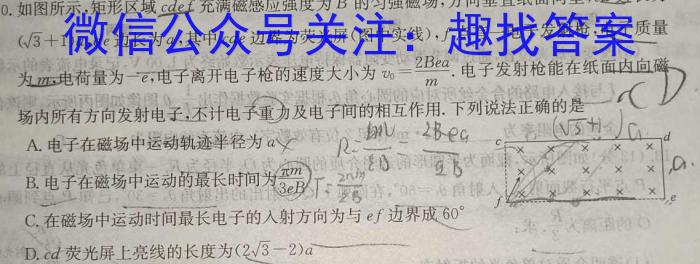 0.如图所示,矩形区域 cdef 充满磁感应强度为 B 的匀强磁场,方向垂直纸面向
微信公众号关注:趣找答案
为 m,电荷量为-e,电子离开电子枪的速度大小为 v₀=2Bea/m.电子发射枪能在纸面内向磁
场内所有方向发射电子,不计电子重力及电子间的相互作用.下列说法正确的是
A.电子在磁场中运动轨迹半径为 a
B.电子在磁场中运动的最长时间为 πm/3eB
C.在磁场中运动时间最长电子的入射方向为与 ef 边界成 60°
D.cd 荧光屏上亮线的长度为(2√3-2)a
(√3+1)a
c d
a
f e